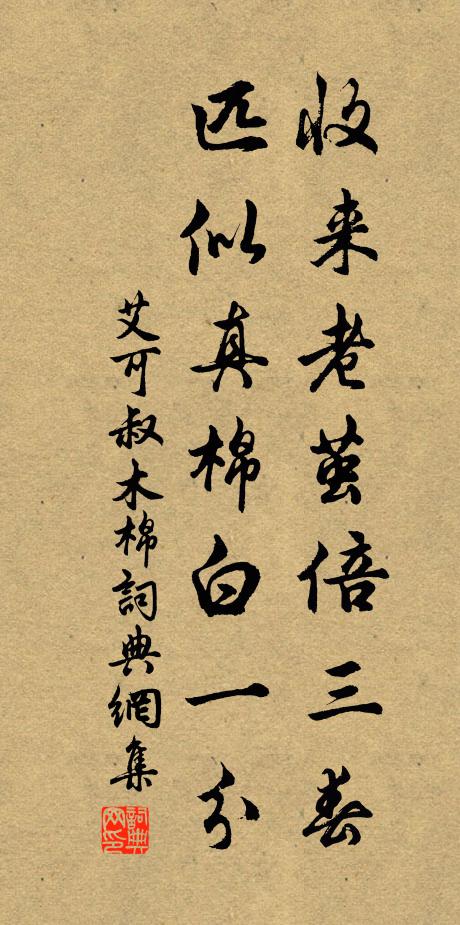 收来老茧倍三春
匹似真棉白一分
艾可叔木棉詞典網集
詞典网印